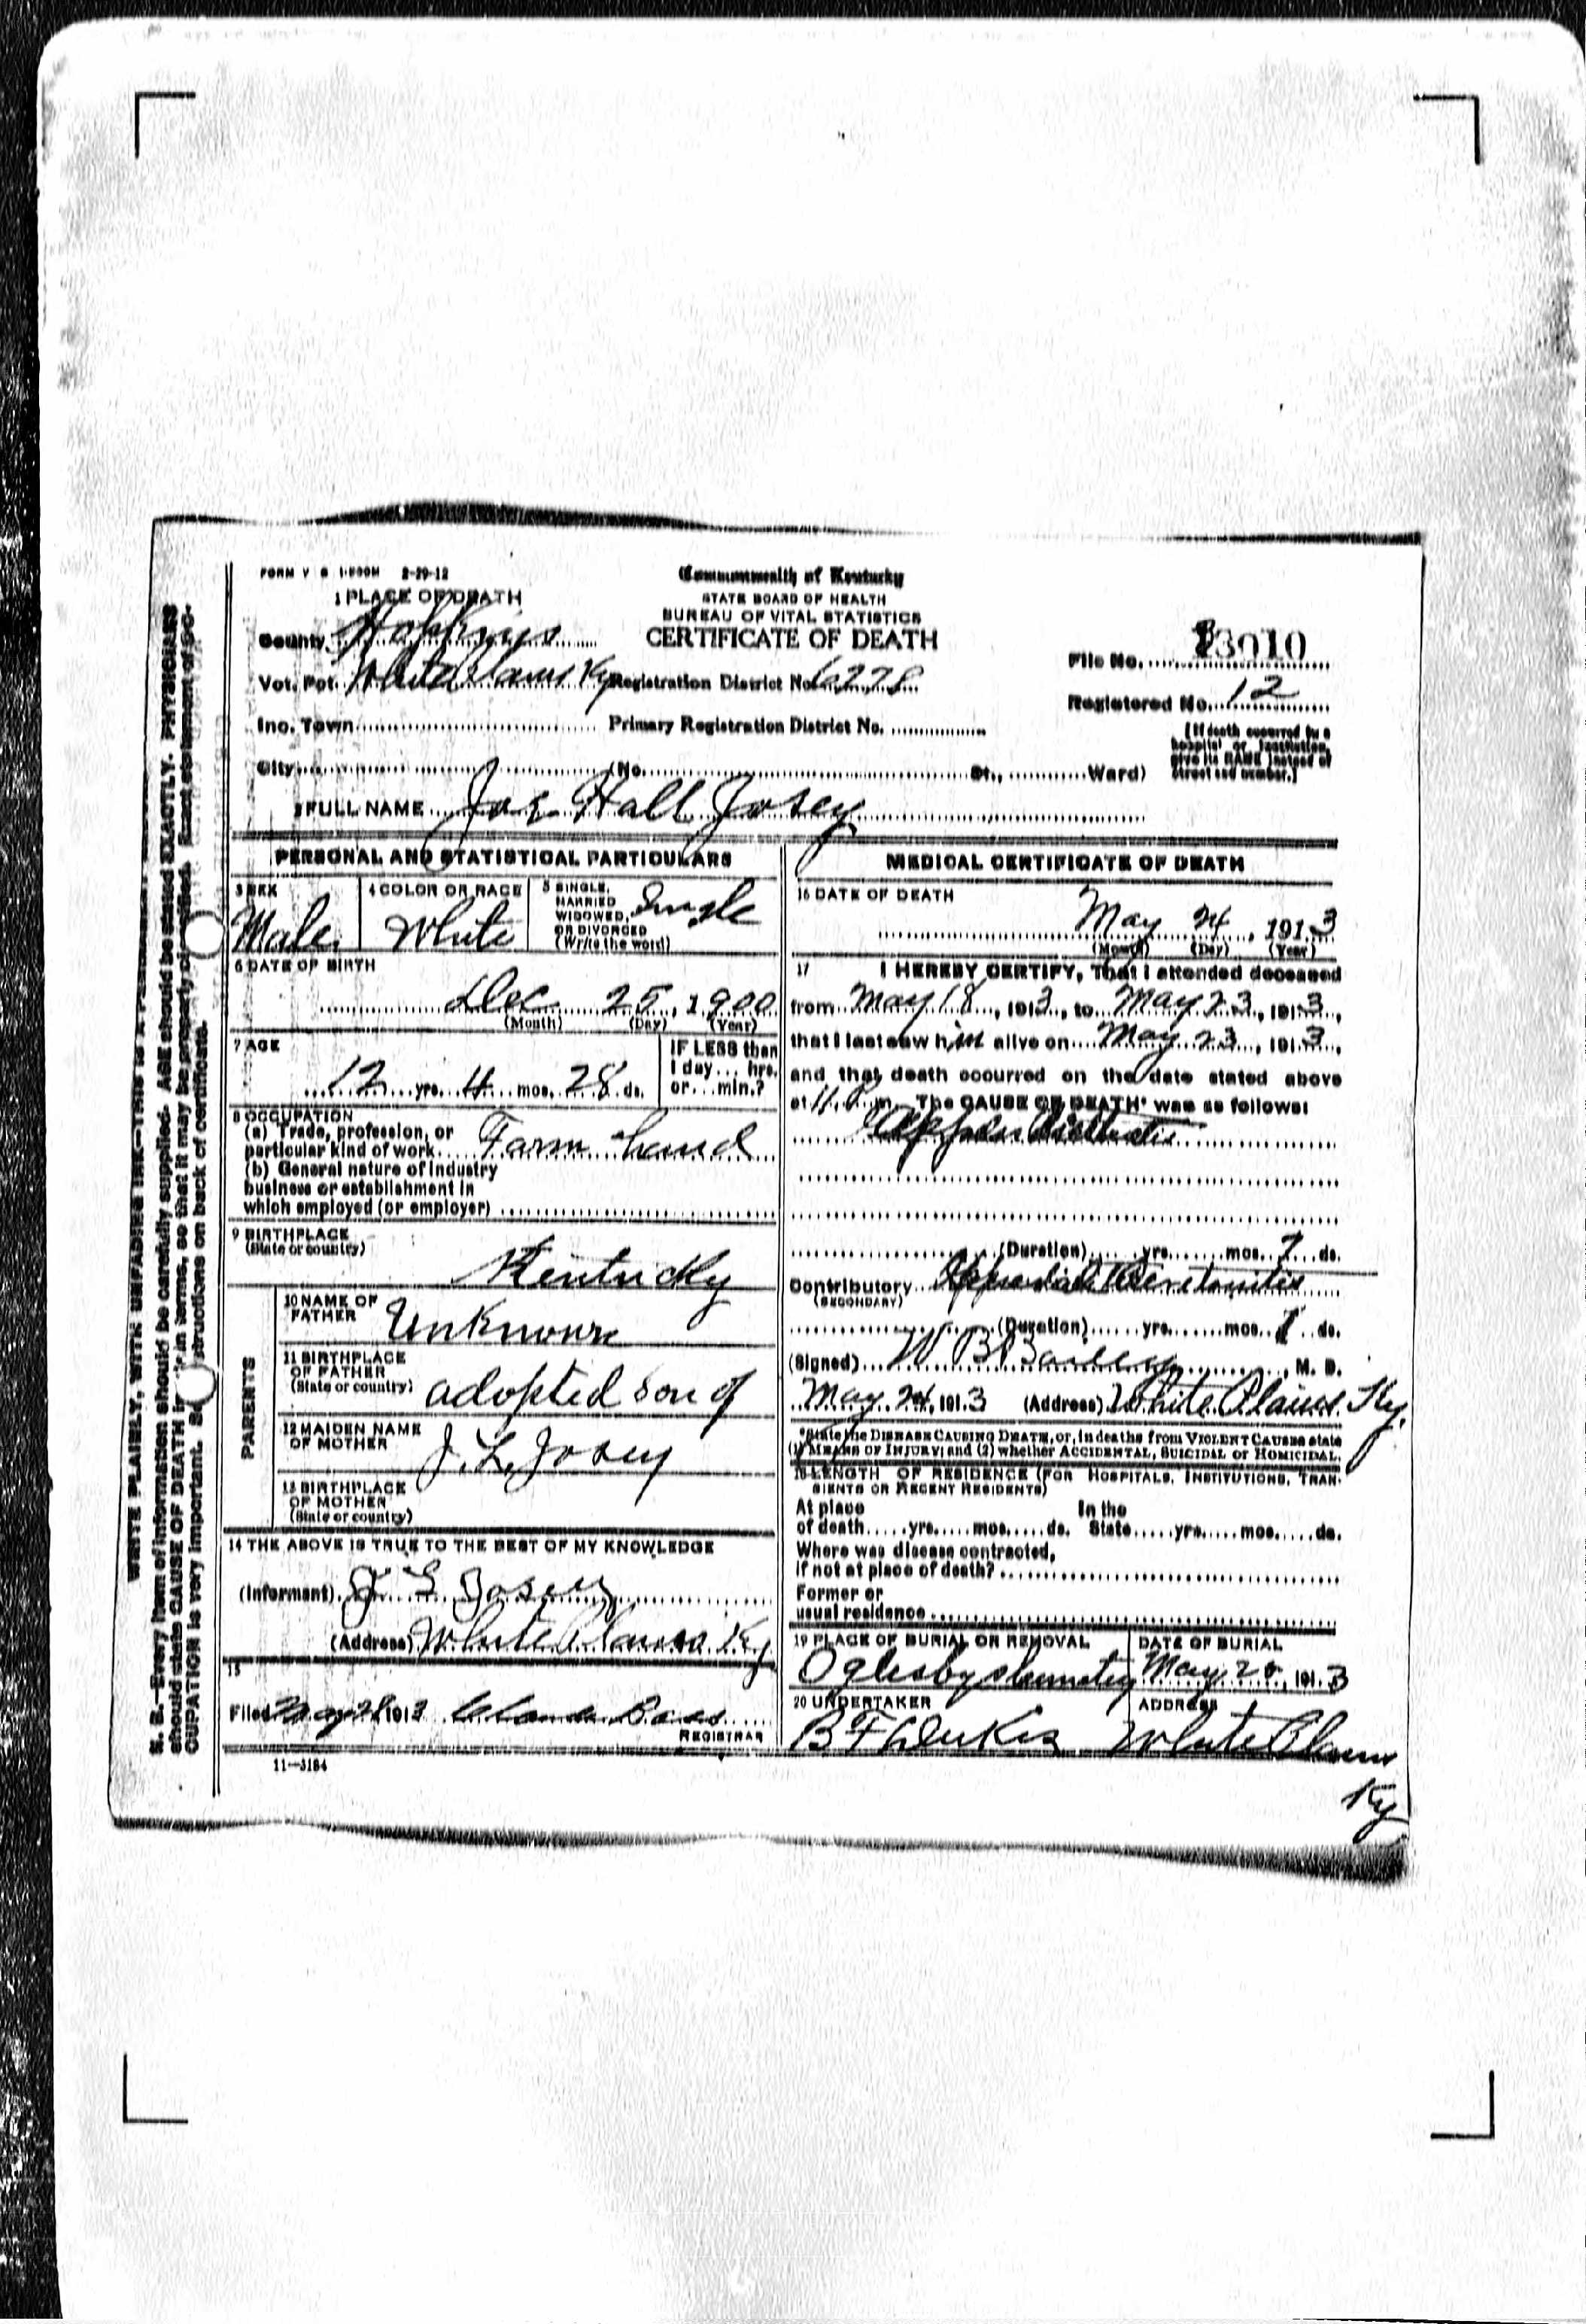 FORM V S 1-500M 2-29-12
Commonwealth of Kentucky
STATE BOARD OF HEALTH
BUREAU OF VITAL STATISTICS
CERTIFICATE OF DEATH
1 PLACE OF DEATH
County Hopkins
Vot. Pct. White Plains Ky Registration District No. 6278
Inc. Town Primary Registration District No.
City (No. St., Ward)
File No. 13010
Registered No. 12
[If death occurred in a hospital or institution, give its NAME instead of street and number.]
2 FULL NAME Joe Hall Josey
PERSONAL AND STATISTICAL PARTICULARS
3 SEX Male
4 COLOR OR RACE White
5 SINGLE, MARRIED WIDOWED, OR DIVORCED (Write the word) Single
6 DATE OF BIRTH
Dec 25, 1900
(Month) (Day) (Year)
7 AGE
12 yrs. 4 mos. 28 ds.
IF LESS than 1 day... hrs. or... min.?
8 OCCUPATION
(a) Trade, profession, or
particular kind of work Farm hand
(b) General nature of industry
business or establishment in
which employed (or employer)
9 BIRTHPLACE
(State or country)
Kentucky
PARENTS
10 NAME OF FATHER Unknown
11 BIRTHPLACE OF FATHER (State or country) adopted son of
12 MAIDEN NAME OF MOTHER J. L. Josey
13 BIRTHPLACE OF MOTHER (State or country)
14 THE ABOVE IS TRUE TO THE BEST OF MY KNOWLEDGE
(Informant) J L Josey
(Address) White Plains Ky
15
Filed May 1913
REGISTRAR
11—3184
MEDICAL CERTIFICATE OF DEATH
16 DATE OF DEATH
May 24, 1913
(Month) (Day) (Year)
17 I HEREBY CERTIFY, That I attended deceased
from May 18, 1913, to May 23, 1913,
that I last saw him alive on May 23, 1913,
and that death occurred on the date stated above
at 11 P m. The CAUSE OF DEATH* was as follows:
(Duration) yrs. mos. 7 ds.
Contributory Peretonitis
(SECONDARY)
(Duration) yrs. mos. ds.
(Signed) W B Bailey, M. D.
May 24, 1913 (Address) White Plains Ky.
*State the DISEASE CAUSING DEATH, or, in deaths from VIOLENT CAUSES state
(1) MEANS OF INJURY; and (2) whether ACCIDENTAL, SUICIDAL or HOMICIDAL.
18 LENGTH OF RESIDENCE (FOR HOSPITALS, INSTITUTIONS, TRAN-
SIENTS OR RECENT RESIDENTS)
At place In the
of death yrs. mos. ds. State yrs. mos. ds.
Where was disease contracted,
if not at place of death?
Former or
usual residence
19 PLACE OF BURIAL OR REMOVAL
Oglesby
DATE OF BURIAL
May 1913
20 UNDERTAKER
B F
ADDRESS
White Plains
Ky
WRITE PLAINLY, WITH UNFADING INK—THIS IS A
N. B.—Every item of information should be carefully supplied. AGE should be stated EXACTLY. PHYSICIANS
should state CAUSE OF DEATH in terms, so that it may be properly classified. Exact statement of OC-
CUPATION is very important. on back of certificate.